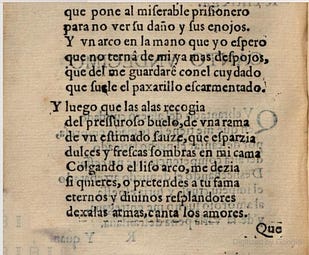 que pone al miserable prisionero
para no ver su daño y sus enojos.
Y vn arco en la mano que yo espero
que no terná de mi ya mas despojos,
que del me guardare con el cuydado
que suele el paxarillo escarmentado.
Y luego que las alas recogia
del pressuroso buelo, de vna rama
de vn estimado sauze, que esparzia
dulces y frescas sombras en mi cama
Colgando el liso arco, me dezia
si quieres, o pretendes a tu fama
eternos y diuinos resplandores
dexa las armas, canta los amores.
Que